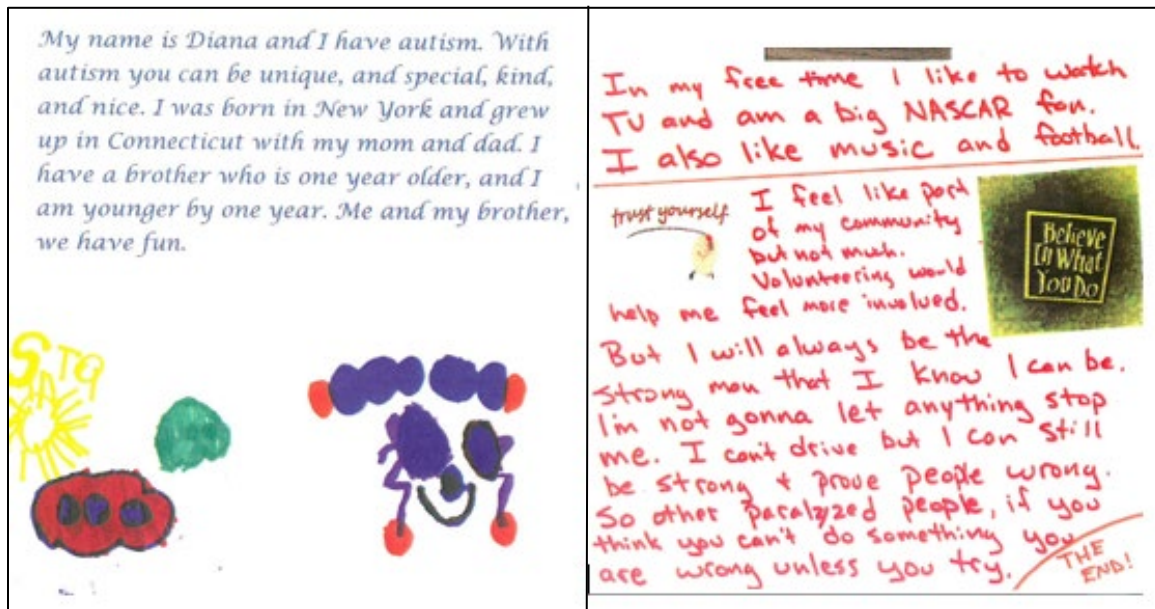 My name is Diana and I have autism. With
autism you can be unique, and special, kind,
and nice. I was born in New York and grew
up in Connecticut with my mom and dad. I
have a brother who is one year older, and I
am younger by one year. Me and my brother,
we have fun.
In my free time I like to watch
TV and am a big NASCAR fan.
I also like music and football.
trust yourself
I feel like part
of my community
but not much.
Volunteering would
help me feel more involved.
Believe
In What
You Do
But I will always be the
strong man that I know I can be.
I'm not gonna let anything stop
me. I can't drive but I can still
be strong + prove people wrong.
So other paralyzed people, if you
think you can't do something you
are wrong unless you try.
THE
END!